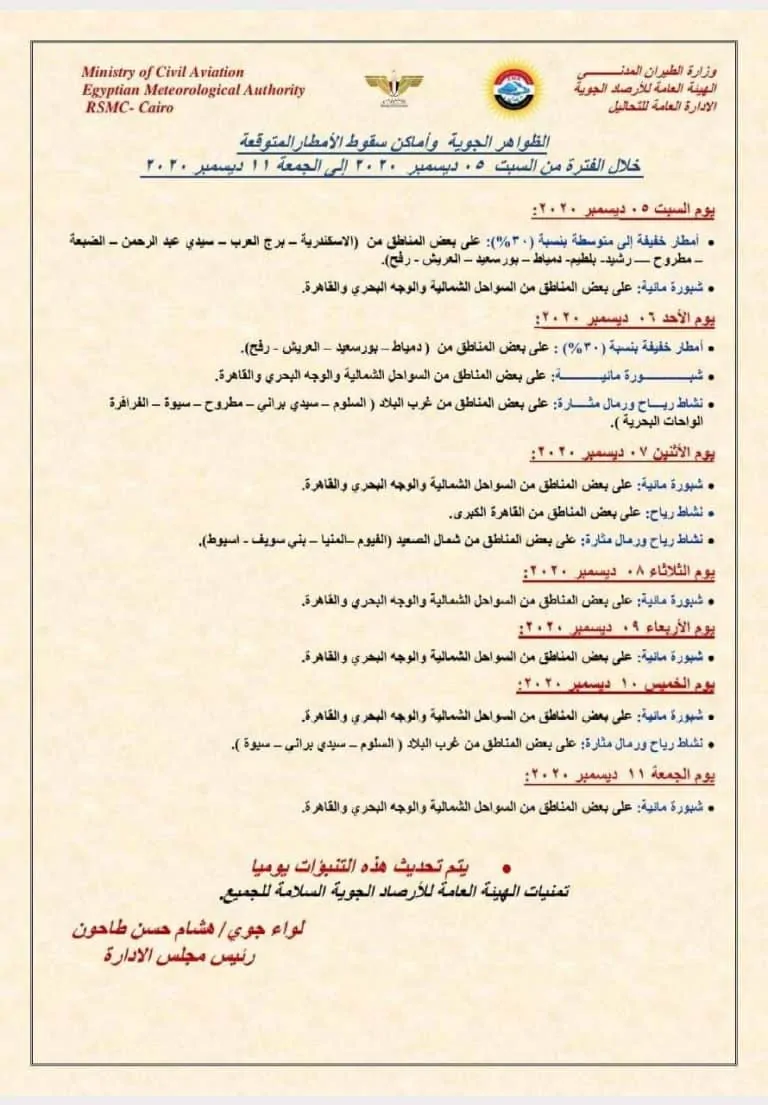 Ministry of Civil Aviation
Egyptian Meteorological Authority
RSMC- Cairo
وزارة الطيران المدنـــــــي
الهيئة العامة للأرصاد الجوية
الادارة العامة للتحاليل
الظواهر الجوية وأماكن سقوط الأمطارالمتوقعة
خلال الفترة من السبت ٠٥ ديسمبر ٢٠٢٠ إلى الجمعة ١١ ديسمبر ٢٠٢٠
يوم السبت ٠٥ ديسمبر ٢٠٢٠:
• أمطار خفيفة إلى متوسطة بنسبة (٣٠%): على بعض المناطق من (الاسكندرية – برج العرب – سيدي عبد الرحمن – الضبعة
– مطروح –– رشيد- بلطيم- دمياط – بورسعيد – العريش - رفح).
• شبورة مائية: على بعض المناطق من السواحل الشمالية والوجه البحري والقاهرة.
يوم الأحد ٠٦ ديسمبر ٢٠٢٠:
• أمطار خفيفة بنسبة (٣٠%) : على بعض المناطق من ( دمياط – بورسعيد – العريش - رفح).
• شبـــــــــورة مائيـــــــــة: على بعض المناطق من السواحل الشمالية والوجه البحري والقاهرة.
• نشاط ريـــاح ورمال مثـــارة: على بعض المناطق من غرب البلاد ( السلوم – سيدي براني – مطروح – سيوة – الفرافرة
الواحات البحرية ).
يوم الأثنين ٠٧ ديسمبر ٢٠٢٠:
• شبورة مائية: على بعض المناطق من السواحل الشمالية والوجه البحري والقاهرة.
• نشاط رياح: على بعض المناطق من القاهرة الكبرى.
• نشاط رياح ورمال مثارة: على بعض المناطق من شمال الصعيد (الفيوم –المنيا – بني سويف - اسيوط).
يوم الثلاثاء ٠٨ ديسمبر ٢٠٢٠:
• شبورة مائية: على بعض المناطق من السواحل الشمالية والوجه البحري والقاهرة.
يوم الأربعاء ٠٩ ديسمبر ٢٠٢٠:
• شبورة مائية: على بعض المناطق من السواحل الشمالية والوجه البحري والقاهرة.
يوم الخميس ١٠ ديسمبر ٢٠٢٠:
• شبورة مائية: على بعض المناطق من السواحل الشمالية والوجه البحري والقاهرة.
• نشاط رياح ورمال مثارة: على بعض المناطق من غرب البلاد ( السلوم – سيدي براني – سيوة ).
يوم الجمعة ١١ ديسمبر ٢٠٢٠:
• شبورة مائية: على بعض المناطق من السواحل الشمالية والوجه البحري والقاهرة.
• يتم تحديث هذه التنبؤات يوميا
تمنيات الهيئة العامة للأرصاد الجوية السلامة للجميع.
لواء جوي/ هشام حسن طاحون
رئيس مجلس الادارة